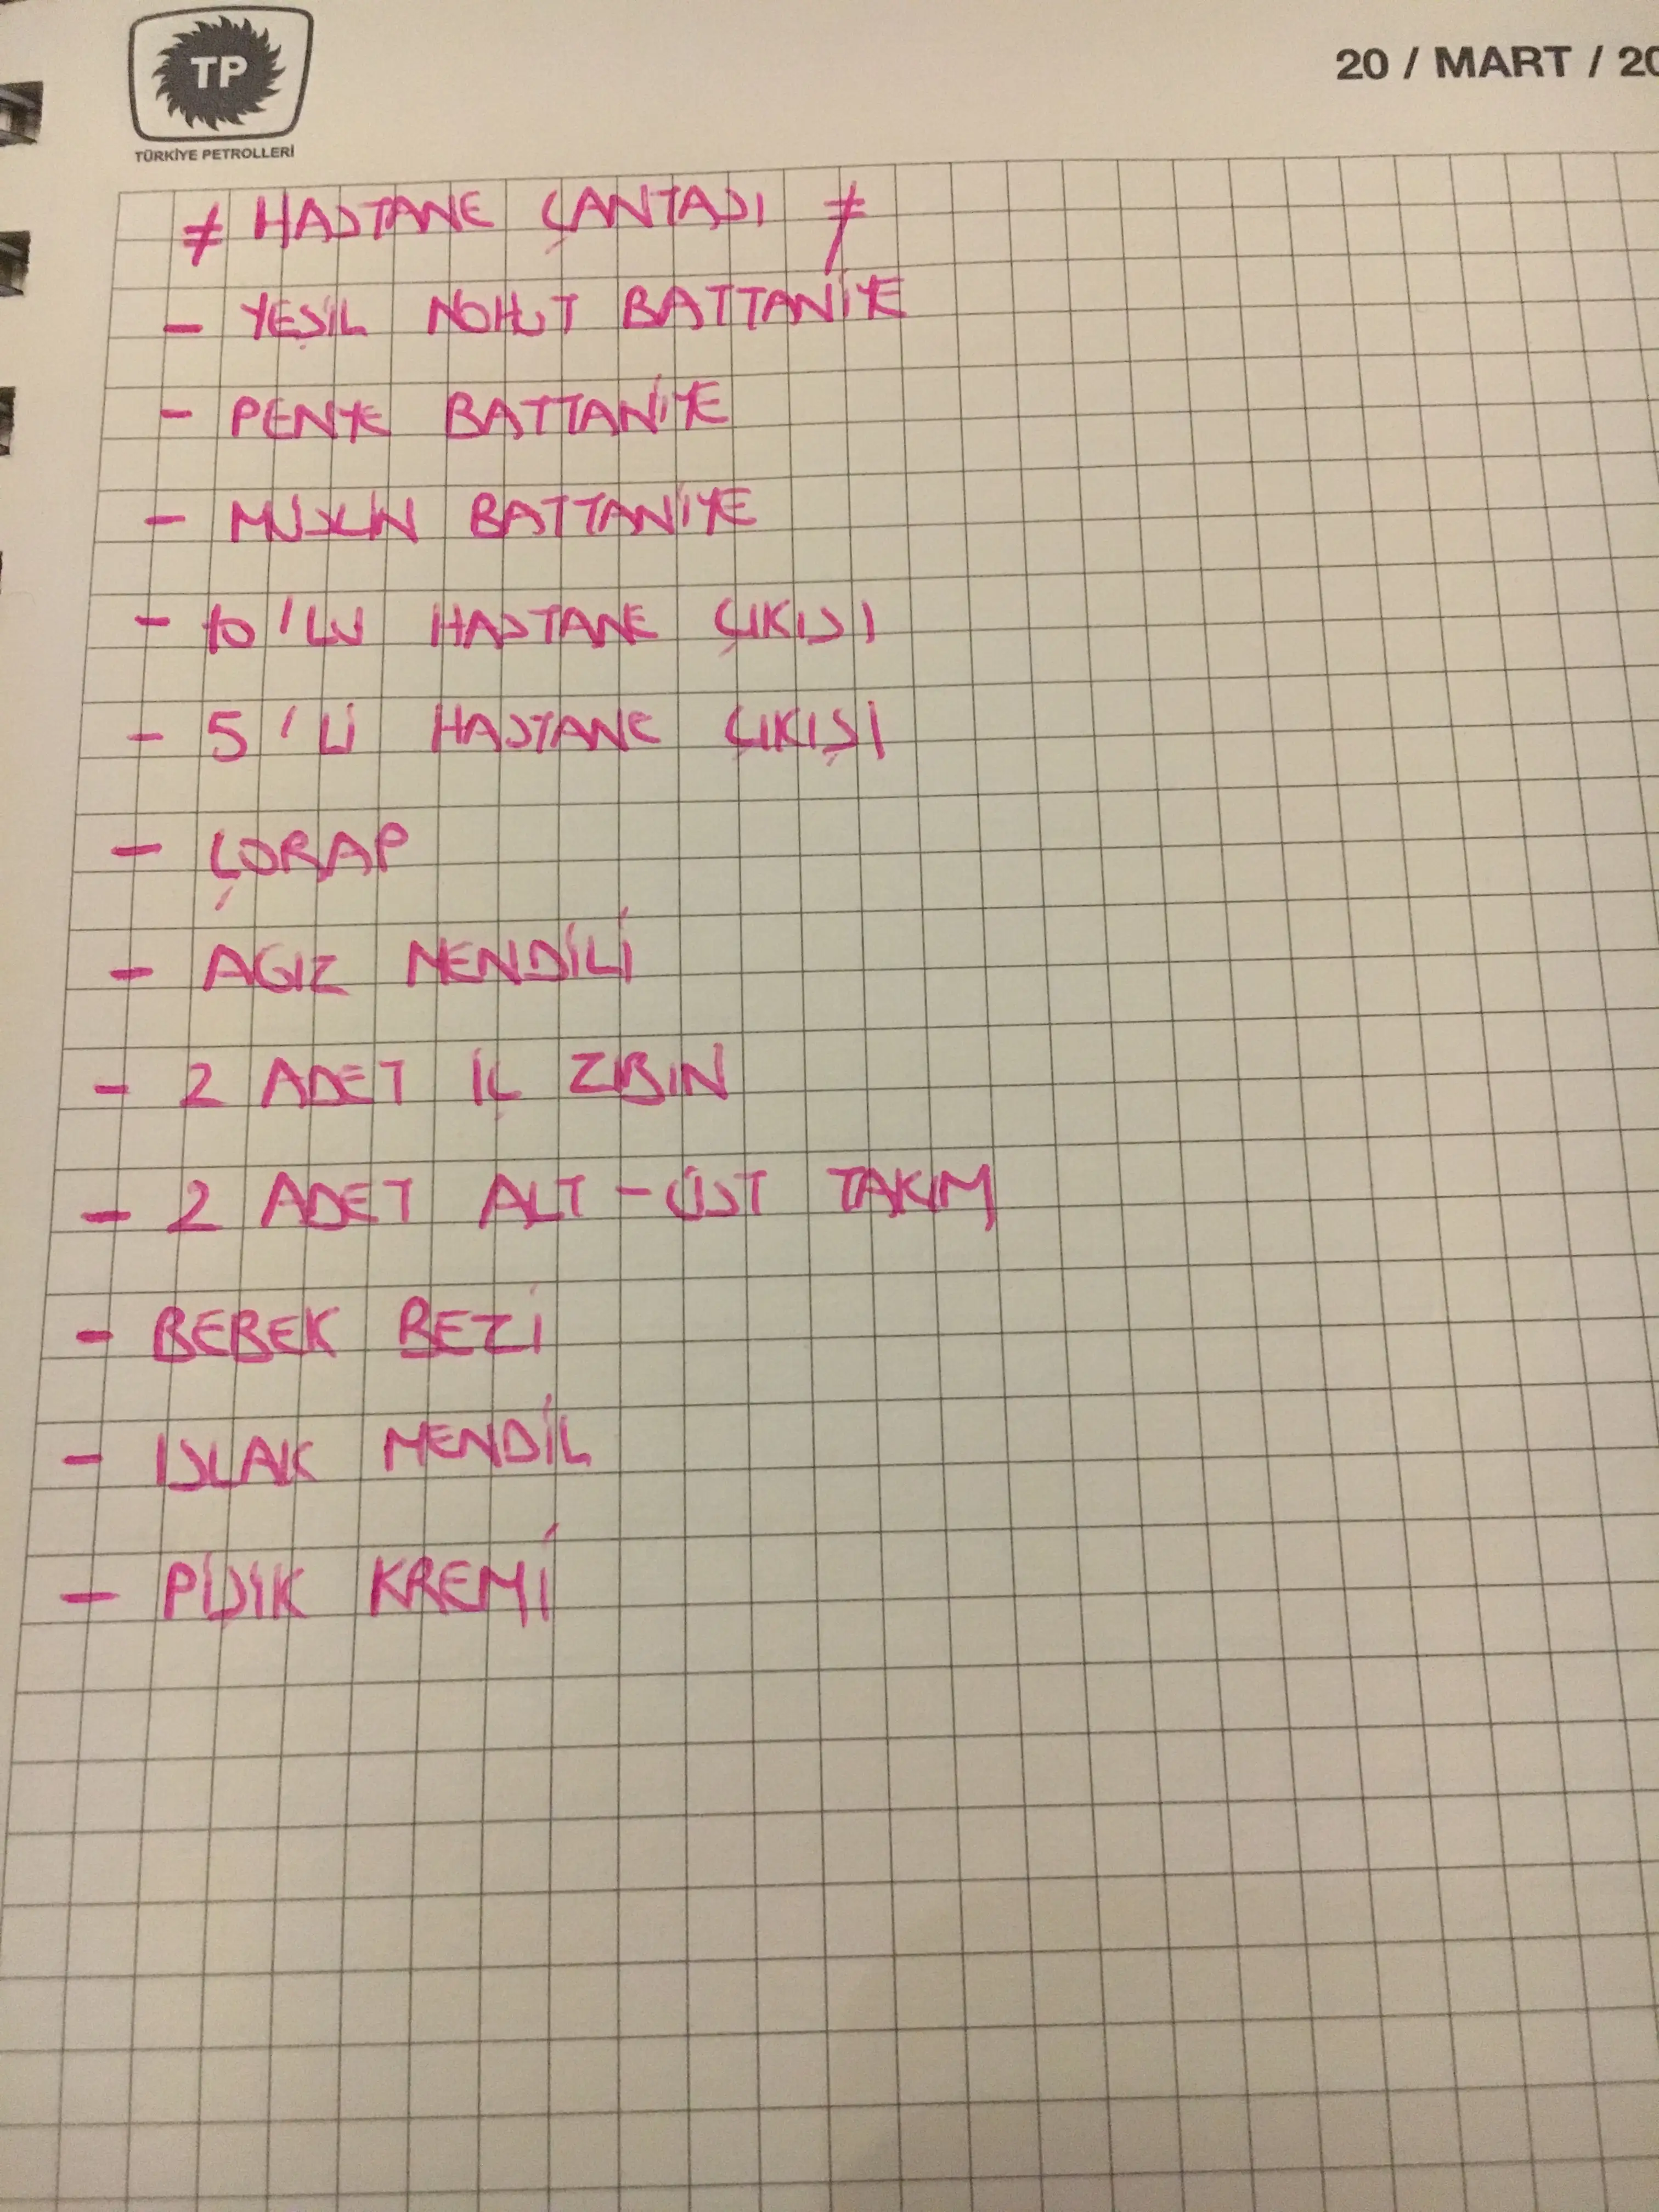 TP
TÜRKİYE PETROLLERİ
20 / MART / 20
≠ HASTANE ÇANTASI ≠
- YEŞİL NOHUT BATTANİYE
- PENYE BATTANİYE
- MÜSLİN BATTANİYE
- 10'LU HASTANE ÇIKISI
- 5'Lİ HASTANE ÇIKIŞI
- ÇORAP
- AGIZ MENDİLİ
- 2 ADET İÇ ZIBIN
- 2 ADET ALT-ÜST TAKIM
- BEBEK BEZİ
- ISLAK MENDİL
- PİŞİK KREMİ